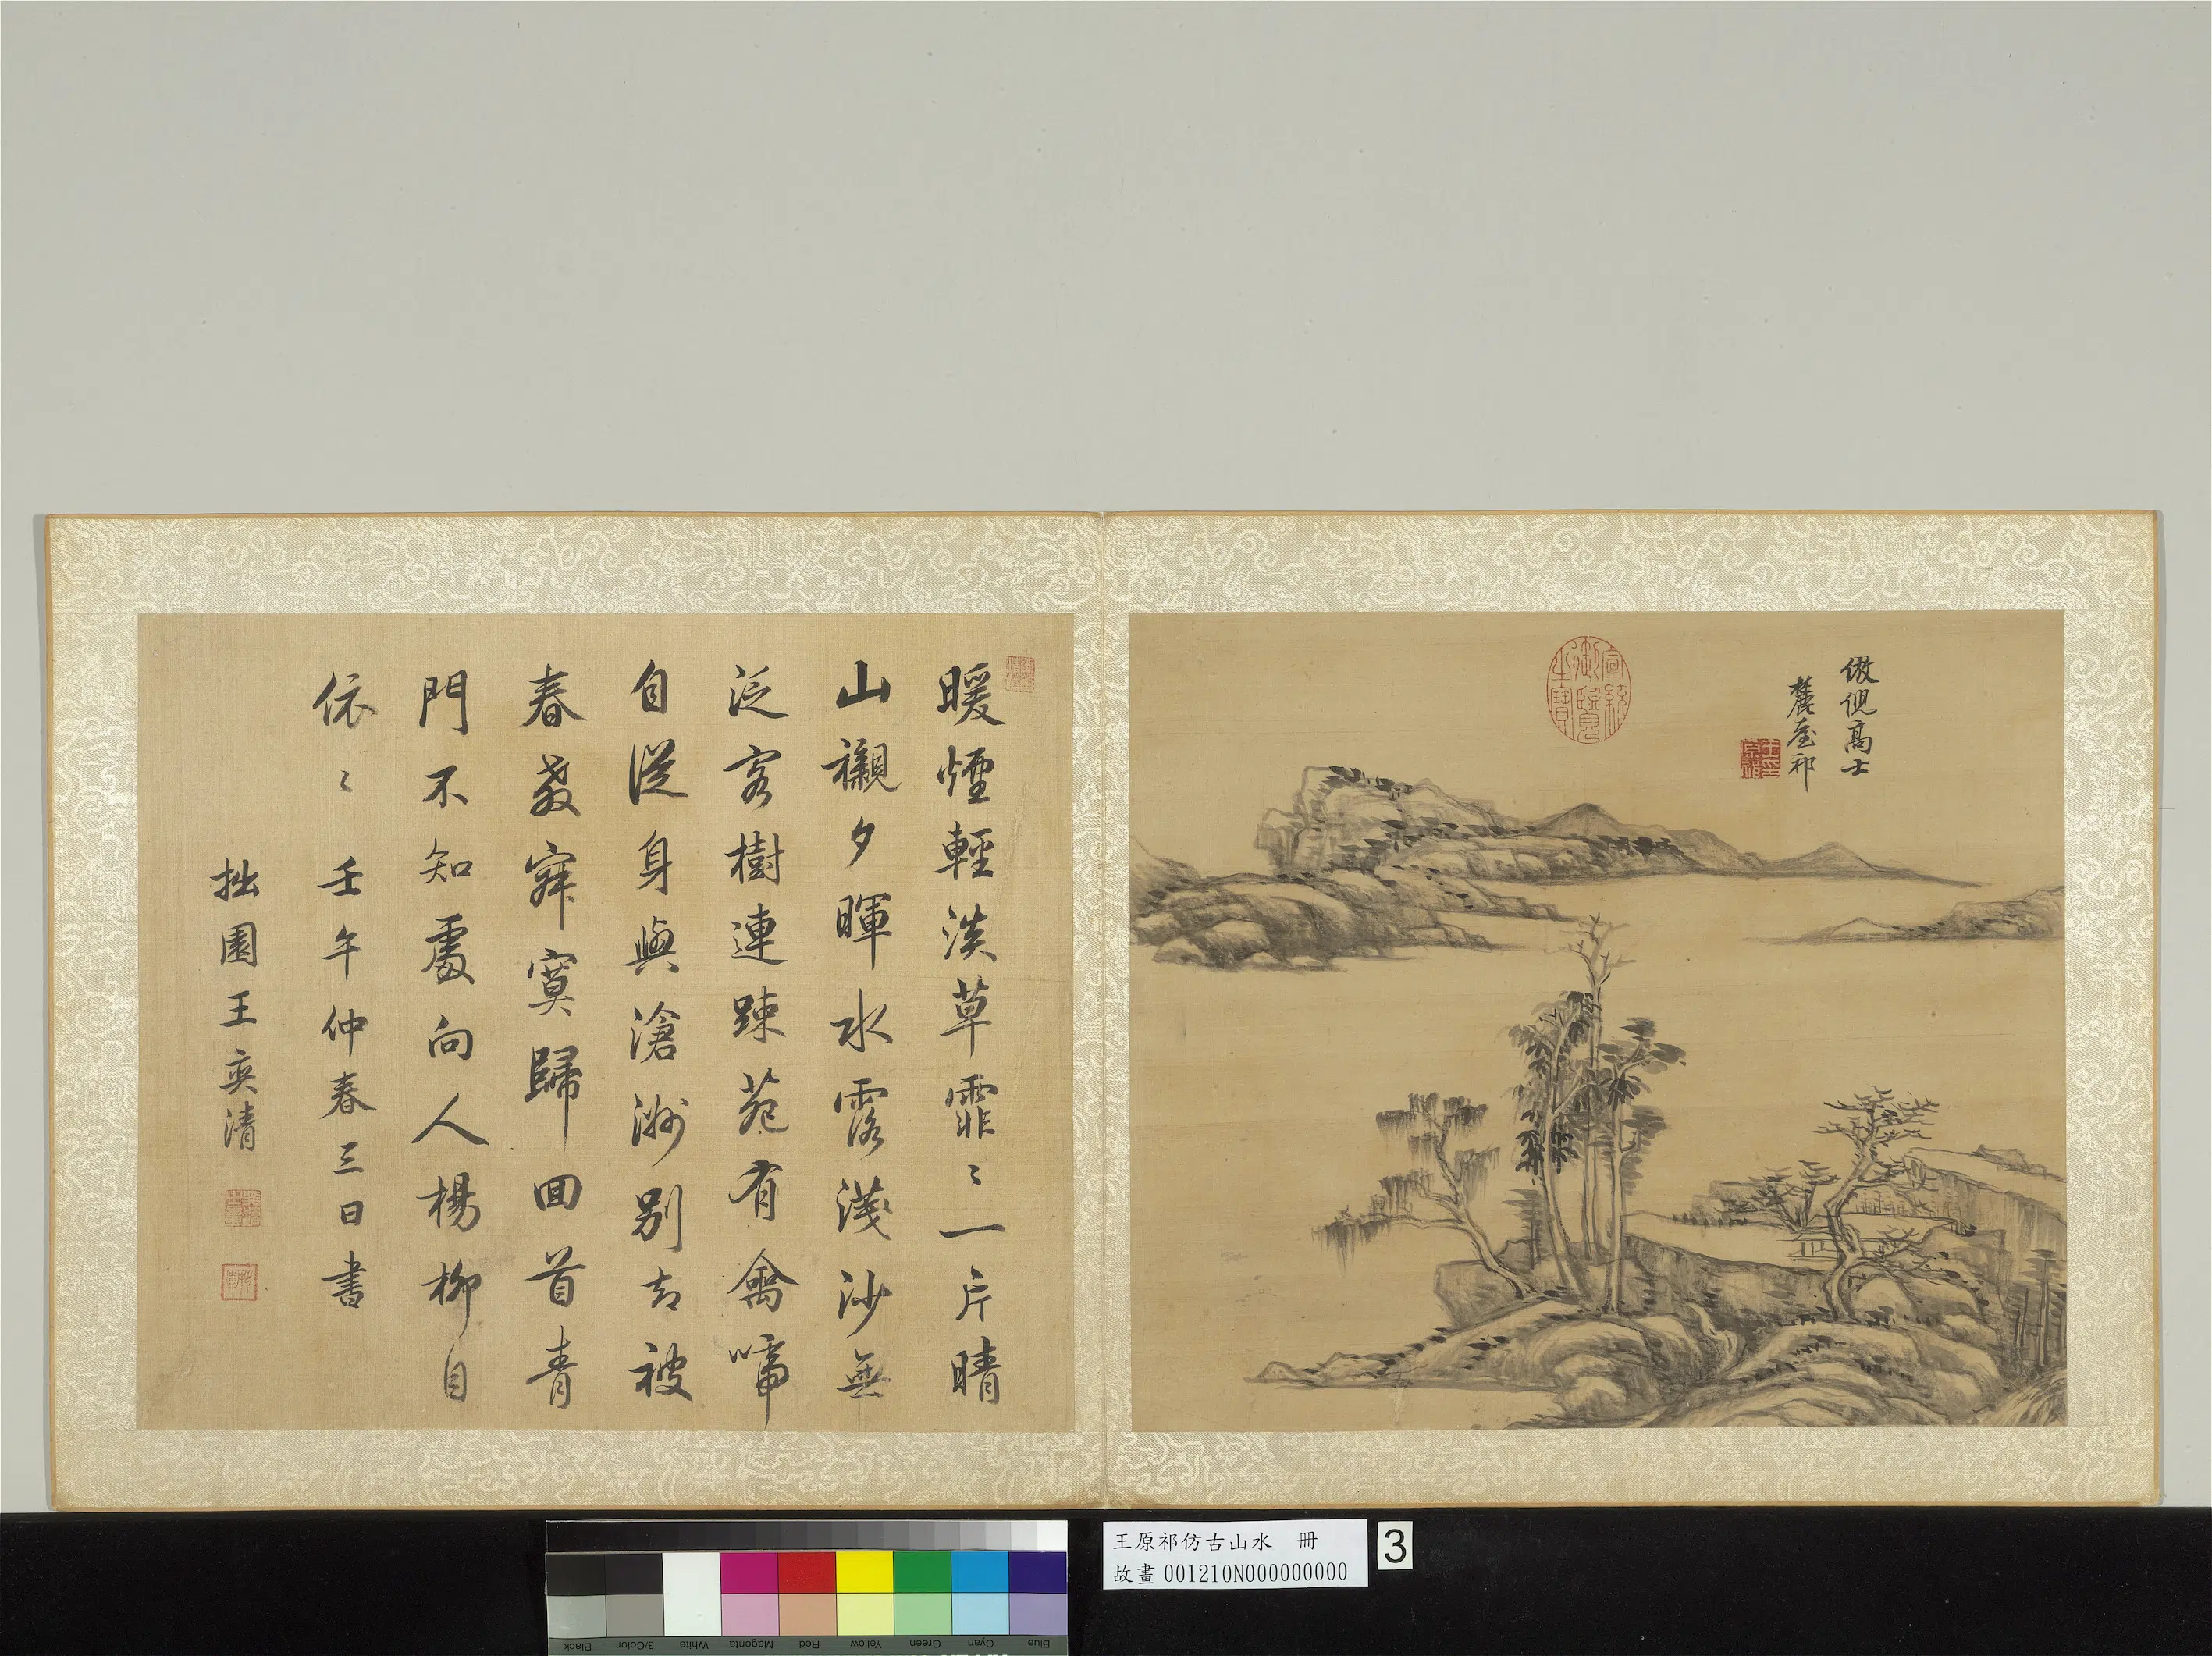 倣倪高士
麓臺祁
宣統御覽之寶
王原祁印
暖煙輕淡草霏〻一片晴
山襯夕暉水落淺沙無
泛客樹連踈苑有禽啼
自從身與滄洲別去被
春教寂寞歸回首青
門不知處向人楊柳自
依〻壬午仲春三日書
拙園王奕清
王原祁仿古山水 冊
故畫 001210N000000000
3
Black
3/Color
White
Magenta
Red
Yellow
Green
Cyan
Blue